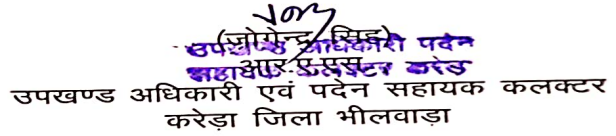 (जोगेन्द्र सिंह)
उपखण्ड अधिकारी पदेन
आर.ए.एस.
सहायक कलक्टर करेड़ा
उपखण्ड अधिकारी एवं पदेन सहायक कलक्टर
करेड़ा जिला भीलवाड़ा